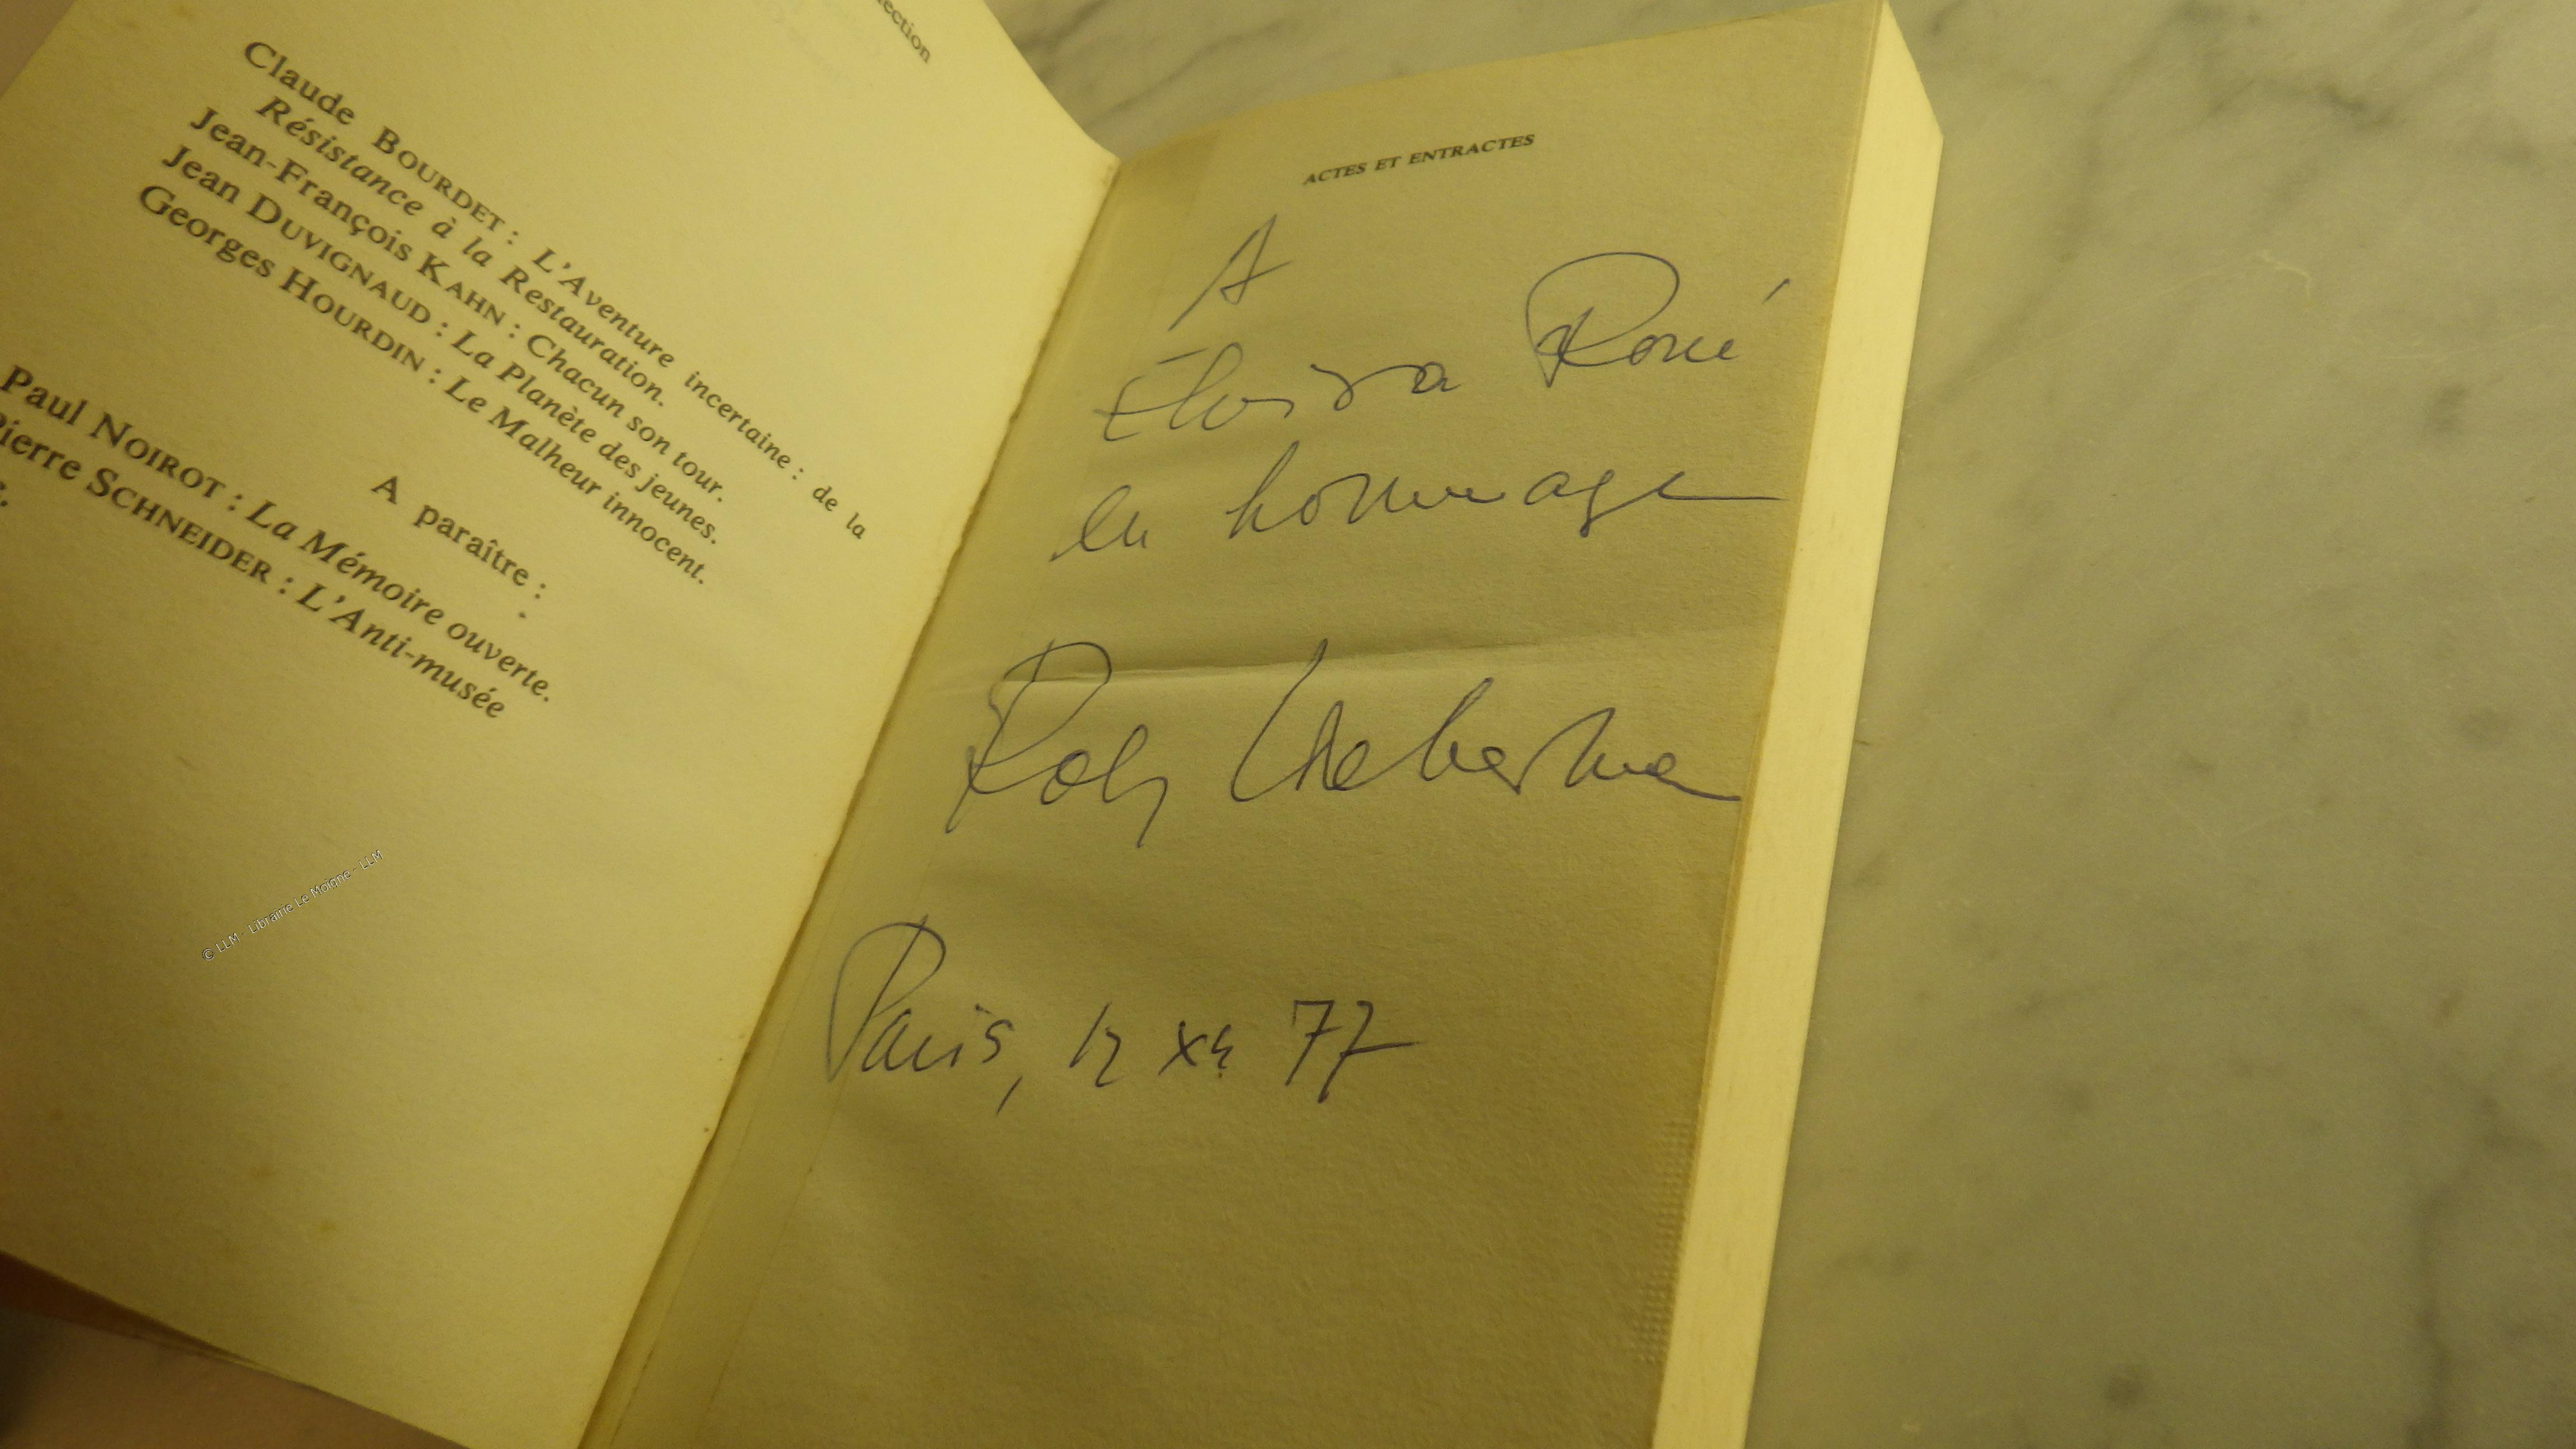 ection
Claude BOURDET : L'Aventure incertaine : de la
Résistance à la Restauration.
Jean-François KAHN : Chacun son tour.
Jean DUVIGNAUD : La Planète des jeunes.
Georges HOURDIN : Le Malheur innocent.
A paraître :
Paul NOIROT : La Mémoire ouverte.
Pierre SCHNEIDER : L'Anti-musée
© LLM - Librairie Le Moigne - LLM
ACTES ET ENTRACTES
A
en hommage
Rolf Liebermann
Paris, 12 77